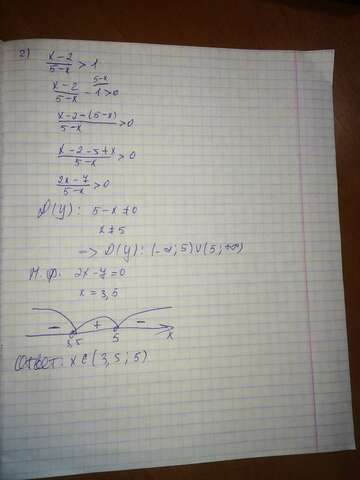 2) (x-2)/(5-x) > 1
(x-2)/(5-x) - 1 > 0
5-x
(x-2-(5-x))/(5-x) > 0
(x-2-5+x)/(5-x) > 0
(2x-7)/(5-x) > 0
D(y): 5-x ≠ 0
x ≠ 5
-> D(y): (-∞; 5) ∪ (5; +∞)
Н.ф. 2x-7=0
x = 3,5
- + -
3,5 5 x
Ответ: x ∈ (3,5; 5)